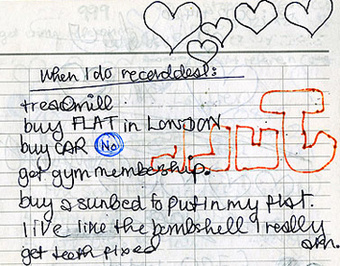 When I do record deal:
treadmill
buy FLAT in LONDON
buy CAR No
get gym membership.
buy a sunbed to put in my flat.
live like the bombshell I really am.
get teeth fixed